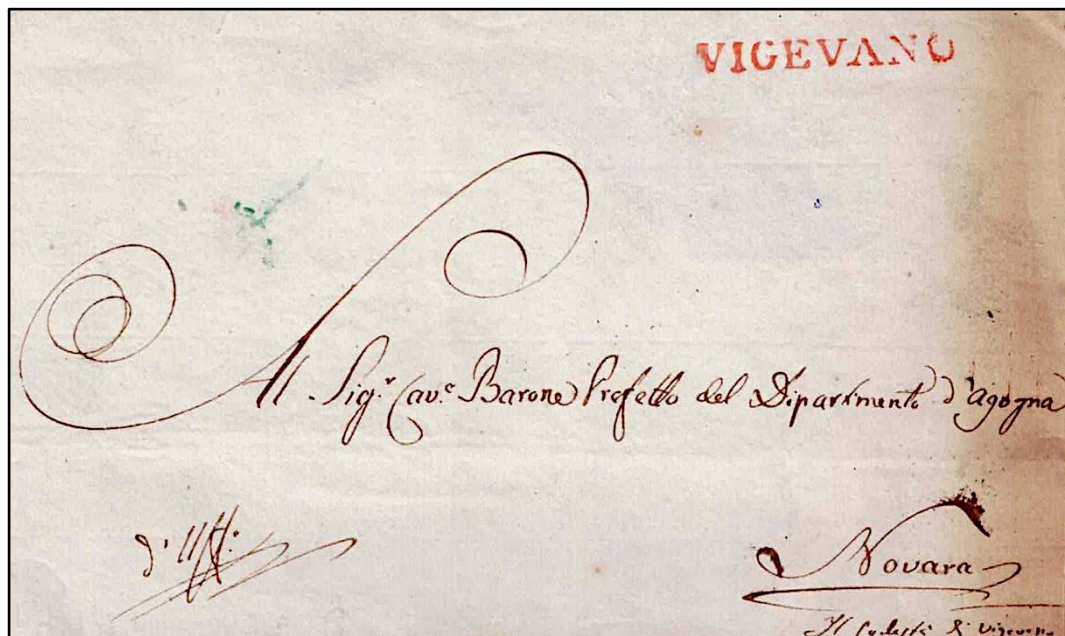 VIGEVANO
Al Sig.r Cav.e Barone Prefetto del Dipartimento d'Agogna
d'Uff.o
Novara
Il Podestà di Vigevano